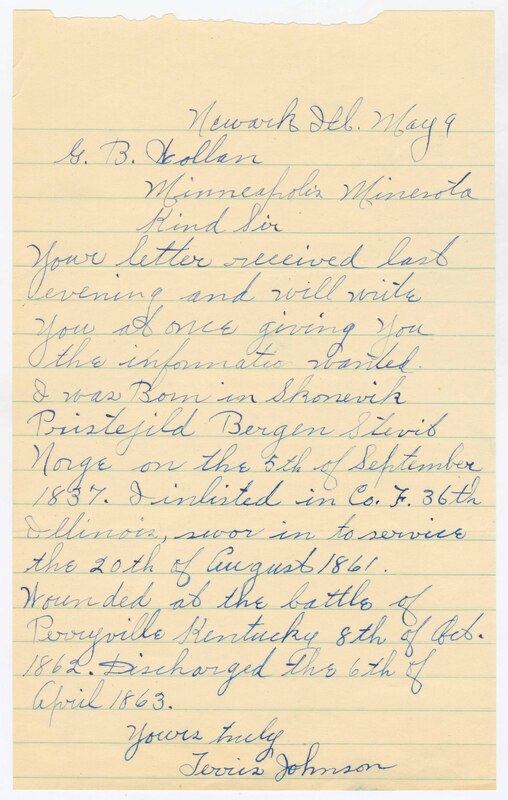 Newark Ill. May 9
G. B. Wollan
Minneapolis Minesota
Kind Sir
Your letter received last
evening and will write
you at once giving you
the informatio wanted.
I was Born in Skonevik
Pristejild Bergen Stevit
Norge on the 5th of September
1837. I inlisted in Co. F. 36th
Illinois, swor in to service
the 20th of August 1861.
Wounded at the battle of
Perryville Kentucky 8th of Oct.
1862. Discharged the 6th of
April 1863.
Yours truly
Terris Johnson